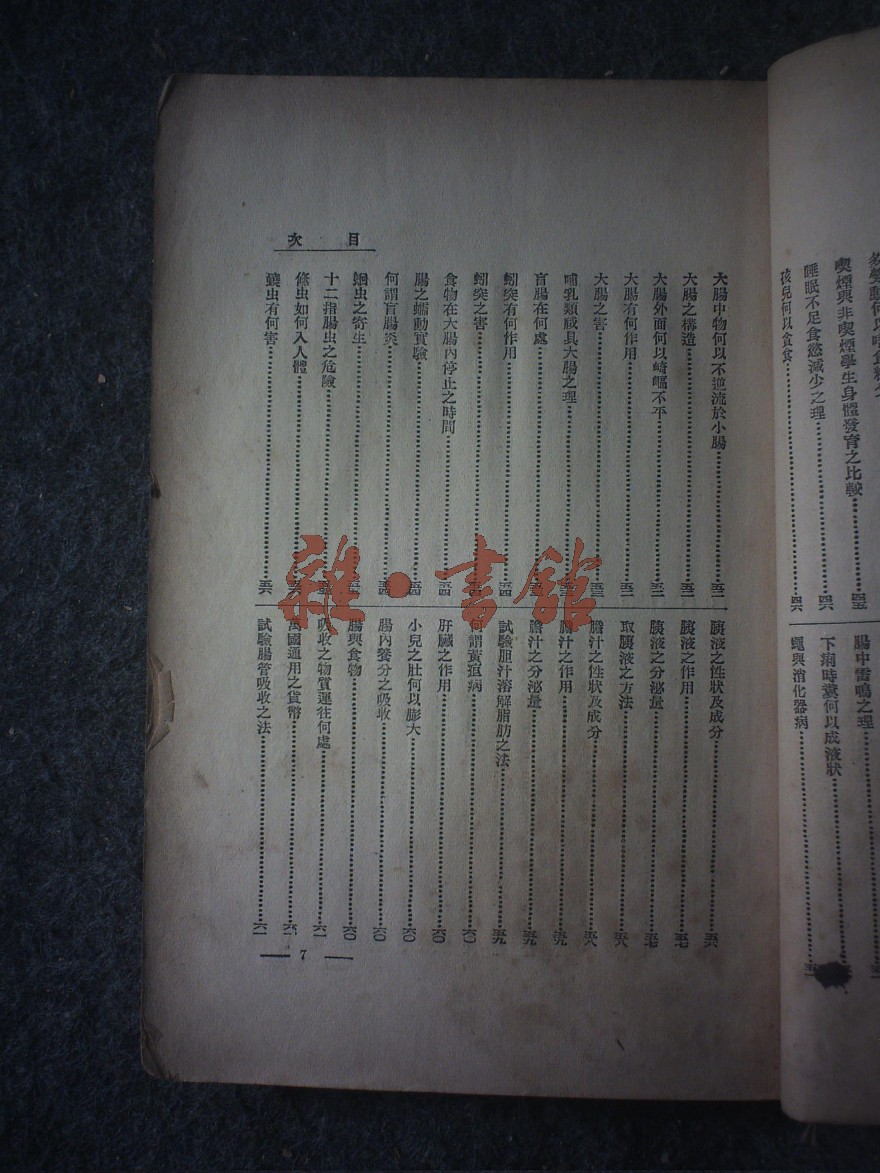 喫煙與非喫煙學生身體發育之比較……四五
睡眠不足食慾減少之理……四六
孩兒何以貪食……四六
腸中雷鳴之理……
下痢時糞何以成液狀……
蠅與消化器病……
目次
大腸中物何以不逆流於小腸……五二
大腸之構造……五二
大腸外面何以崎嶇不平……五二
大腸有何作用……五二
大腸之害……五三
哺乳類咸具大腸之理……五三
盲腸在何處……五三
蚓突有何作用……五四
蚓突之害……五四
食物在大腸內停止之時間……五四
腸之蠕動實驗……五四
何謂盲腸炎……五四
蛔虫之寄生……五五
十二指腸虫之危險……五五
絛虫如何入人體……五六
蟯虫有何害……五六
胰液之性狀及成分……五六
胰液之作用……五七
胰液之分泌量……五七
取胰液之方法……五八
膽汁之性狀及成分……五八
膽汁之作用……五九
膽汁之分泌量……五九
試驗胆汁溶解脂肪之法……五九
何謂黃疸病……六〇
肝臟之作用……六〇
小兒之肚何以膨大……六〇
腸內養分之吸收……六〇
腸與食物……六〇
吸收之物質運往何處……六一
萬國通用之貨幣……六一
試驗腸管吸收之法……六一
7
雜·書館